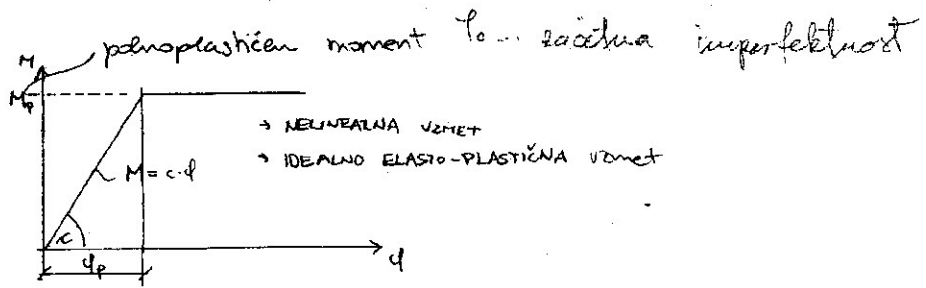 M polnoplastičen moment φ₀... začetna imperfektnost
Mp
→ NELINEARNA VZMET
→ IDEALNO ELASTO-PLASTIČNA vzmet
M = c·φ
c
φp
φ